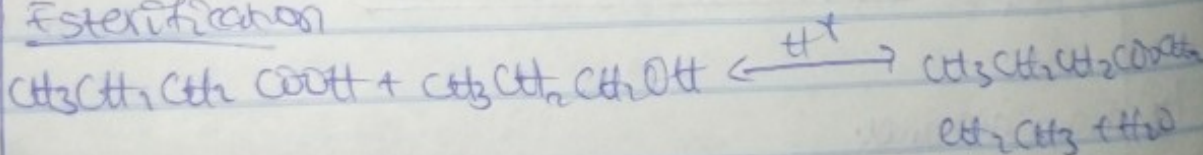 Esterification
CH3CH2CH2 COOH + CH3CH2CH2OH ⟷ H+ CH3CH2CH2COOCH2
CH2CH3 + H2O